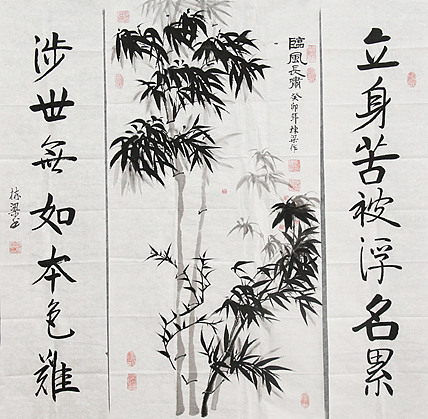 立身苦被浮名累
臨風長嘯
癸卯年棟梁作
涉世無如本色難
棟梁書